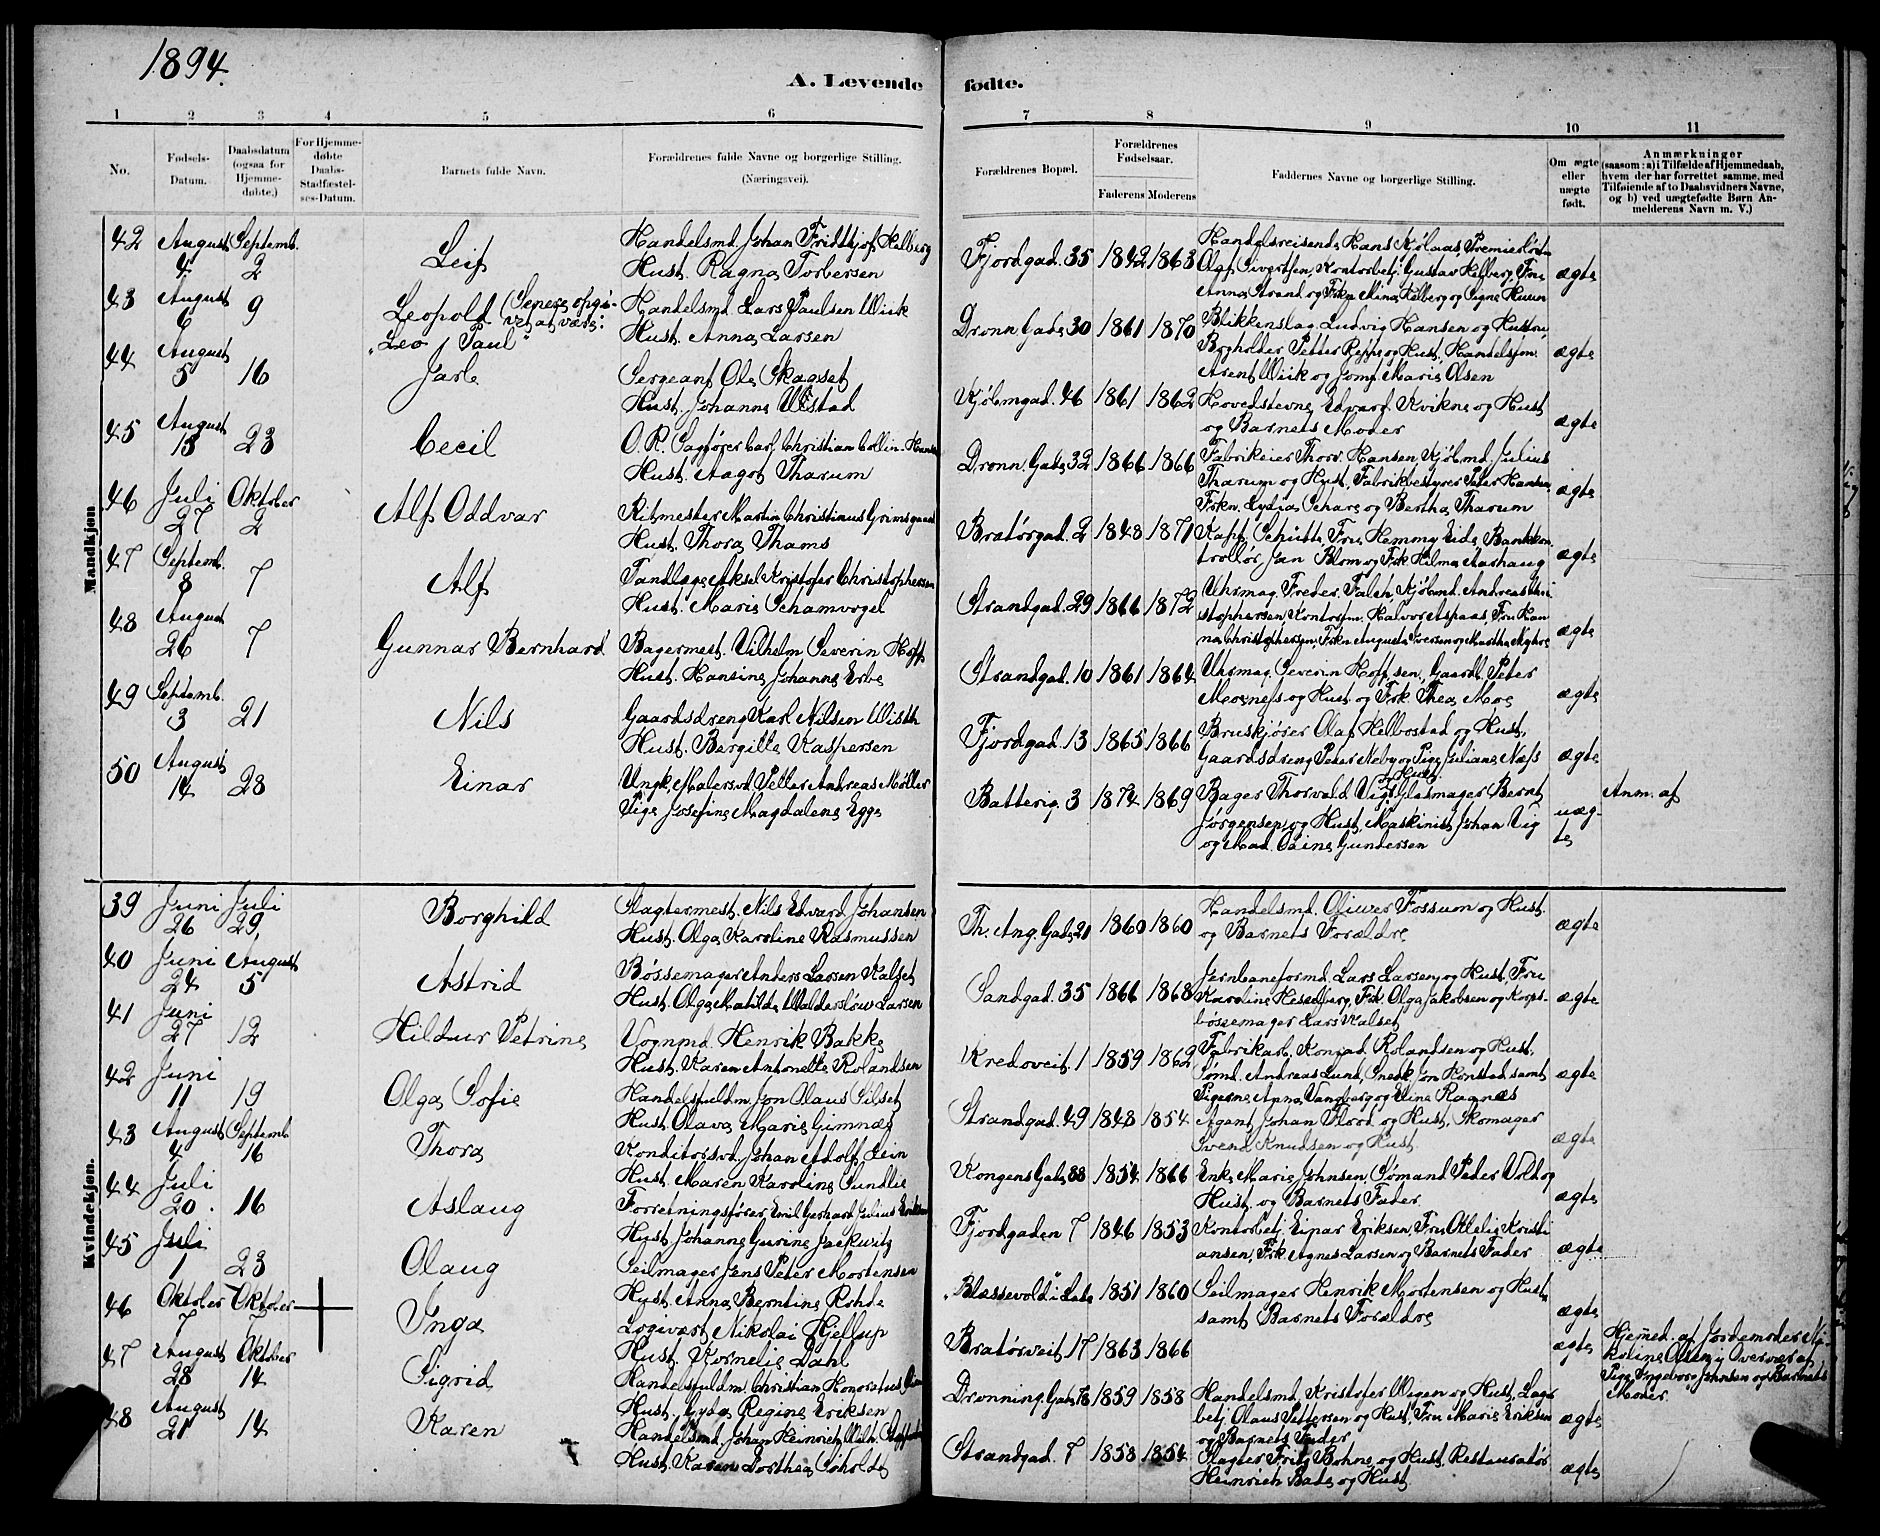 1894.
A. Levende fødte.
1 2 3 4 5 6 7 8 9 10 11
No.
Fødsels-Datum.
Daabsdatum (ogsaa for Hjemmedøbte.)
For Hjemmedøbte Daabs-Stadfæstelses-Datum.
Barnets fulde Navn.
Forældrenes fulde Navne og borgerlige Stilling. (Næringsvei).
Forældrenes Bopæl.
Forældrenes Fødselsaar.
Faderens Moderens
Faddernes Navne og borgerlige Stilling.
Om ægte eller uægte født.
Anmærkninger (saasom: a) i Tilfælde af Hjemmedaab, hvem der har forrettet samme, med Tilføiende af to Daabsvidners Navne, og b) ved uægtefødte Børn Anmelderens Navn m. V.)
Mandkjøn
42 August 4 Septemb. 2 Leif
Handelsmd. Johan Fridthjof Helberg
Hust. Ragna Torbersen
Fjordgad. 35 1842 1863
Handelsreisende Hans Kjølaas, Premierløitn
Olaf Sivertsen, Kontorbetj. Gustav Helberg, Fru
Anna Strand og Frkn Mina Helberg og Signe Huun
ægte
43 August 6 9 Leopold (Senere opgivet at være: "Leo Paul"
Handelsmd. Lars Paulsen Wiik
Hust. Anna Larsen
Dronn. Gade 30 1861 1870
Blikkenslag. Ludvig Hansen og Hustru,
Bogholder Petter Reppe og Hust, Handelsfm.
Arent Wiik og Jomf. Marie Olsen
ægte
44 August 5 16 Jarle
Sergeant Ole Skagset
Hust. Johanne Ulstad
Kjøbmgad. 46 1861 1862
Hovedstevne Edvard Kvikne og Hust
og Barnets Moder
ægte
45 August 13 23 Cecil
O. R. Sagfører Carl Christian Collin Hansen
Hust. Aagot Tharum
Dronn. Gade 32 1866 1866
Fabrikeier Thorv. Hansen, Kjøbmd. Julius
Tharum og Hust, Fabrikbestyrer Peter Hansen,
Frkn. Lydia Schare og Bertha Tharum
ægte
46 Juli 27 Oktober 2 Alf Oddvar
Ritmester Martin Christinus Grimsgaard
Hust. Thora Thams
Bratørgad. 2 1848 1871
Kapt. Schutte, Fru Hemmy Eide, Bankkon
trollør Jan Blom og Frk Helma Aarhaug
ægte
47 Septemb. 8 7 Alf
Tandlæge Aksel Kristofer Christophersen
Hust. Marie Schamvogel
Strandgad. 29 1866 1872
Uhrmag. Freder. Faleh, Kjøbmd. Andreas Chri
stophersen, Kontorfm. Halvor Aspaas, Fru Han
na Christophersen, Frkn Augusta Iversen og Martha
ægte
48 August 26 7 Gunnar Bernhard
Bagermest. Vilhelm Severin Hoff
Hust. Hansine Johanne Erbe
Strandgad. 10 1861 1864
Uhrmag. Severin Hoff, sen, Gaardb. Peter
Moxness og Hust og Frk Thea Moe
ægte
49 Septemb. 3 21 Nils
Gaardsdreng Karl Nilsen Wisth
Hust. Bergitte Kaspersen
Fjordgad. 13 1865 1866
Bruskjører Olaf Helbostad og Hust,
Gaardsdreng Peter Neby og Pige Juliane Næss
ægte
50 August 14 28 Einar
Ungk. Malersvd. Petter Andreas Møller
Pige Josefine Magdalena Egge
Batterig. 3 1874 1869
Bager Thorvald Vig og Hust, Glasmager Bernt
Jørgensen og Hust, Maskinist Johan Vig
og Mad. Oline Gundersen
uægte
Anm. af
Kvindekjøn.
39 Juni 26 Juli 29 Borghild
Slagtermest. Nils Edvard Johansen
Hust. Olga Karoline Rasmussen
Th. Ang. Gade 21 1860 1860
Handelsmd. Oliver Fossum og Hust.
og Barnets Forældre
ægte
40 Juni 24 August 5 Astrid
Bøssemager Anders Larsen Kalset
Hust. Olga Matilde Walderslów Larsen
Sandgad. 35 1866 1868
Jernbaneformd. Lars Larsen og Hust, Fru
Karoline Hesselberg, Frk. Olga Jakobsen og Korps-
bøssemager Lars Kalset
ægte
41 Juni 27 12 Hildur Petrine
Vognmd. Henrik Bakke
Hust. Karen Antonette Rolandsen
Kredoveit 1 1859 1862
Fabrikarb. Konrad Rolandsen og Hust,
Sømd. Andreas Lund, Snedk. Jon Konstad samt
Pigerne Anna Vangberg og Eline Ragnæs
ægte
42 Juni 11 19 Olga Sofie
Handelsfuldm. Jon Olaus Silset
Hust. Olava Marie Gimnæs
Strandgad. 49 1848 1854
Agent Johan Flord og Hust, Skomager
Svend Knudsen og Hust,
ægte
43 August 4 Septemb 16 Thora
Konditorsvd. Johan Adolf Lein
Hust. Maren Karoline Sundlie
Kongens Gade 88 1854 1866
Enke Marie Johnsen, Sømand Peder Vold og
Hust. og Barnets Fader
ægte
44 Juli 20 16 Aslaug
Forretningsfører Emil Gerhard Julius Eriksen
Hust. Johanne Gurine Jackwitz
Fjordgaden 7 1846 1853
Kontorbetj. Einar Eriksen, Fru Ottelie Kristi
ansen, Frk Agnes Larsen og Barnets Fader
ægte
45 Juli 1 23 Olaug
Seilmager Jens Peter Mortensen
Hust. Anna Berntine Rohde
"Blæssevold" i Lade 1851 1860
Seilmager Henrik Mortensen og Hust
samt Barnets Forældre
ægte
46 Oktober 7 Oktober 7 Inga
Logivært Nikolai Hjellup
Hust. Kornelie Dahl
Bratørveit 17 1863 1866
ægte
Hjemmed. af Jordemoder Ni-
koline Olsen i Overvær af
Pige Ingeborg Johnsen og Barnets
Moder.
47 August 28 Oktober 14 Sigrid
Handelsfuldm. Christian Honoratus
Hust. Lyda Regine Eriksen
Dronning. Gade 76 1859 1858
Handelsmd. Kristofer Wigen og Hust, Lager
betj. Olaus Pettersen og Hust, Fru Marie Eriksen
og Barnets Fader
ægte
48 August 21 14 Karen
Handelsmd. Johan Heinrich Wilh.
Hust. Karen Dorthea Soholdt
Strandgad. 7 1858 1854
Slagter Fritz Bohne og Hust, Restauratør
Heinrich Bade og Hust
ægte